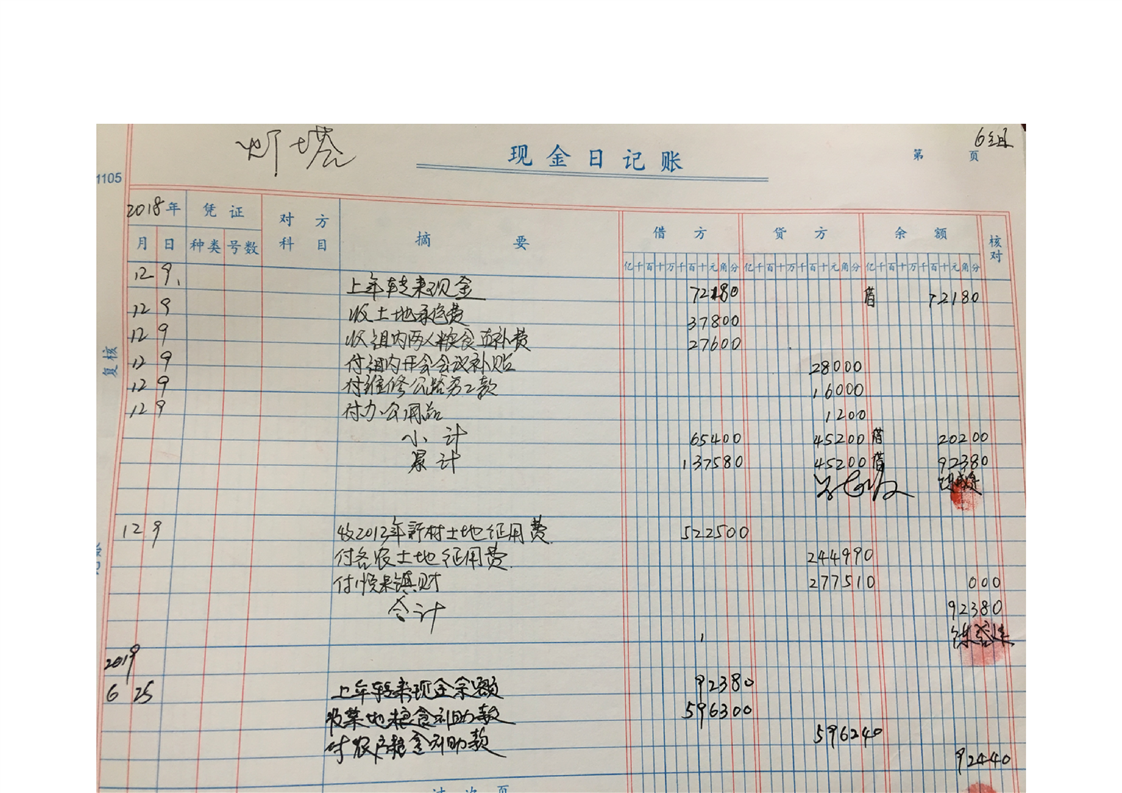 6组
现金日记账
第 页
1105
2018年 凭证 对方 摘要 借方 贷方 余额 核对
月 日 种类 号数 科目 亿千百十万千百十元角分 亿千百十万千百十元角分 亿千百十万千百十元角分
12 9 上年转来现金 72180 借 72180
12 9 收土地承包费 37800
12 9 收组内两人粮食直补费 27600
12 9 付组内开会会议补贴 28000
12 9 付维修公路务工款 16000
12 9 付办公用品 1200
小计 65400 45200 借 20200
累计 137580 45200 借 92380
复核
12 9 收2012年新村土地征用费 522500
付各农土地征用费 244990
付悦来镇财 277510 000
合计 92380
2019
6 25 上年转来现金余额 92380
收某地粮食补助款 596300
付农户粮食补助款 596240
92440
过次页